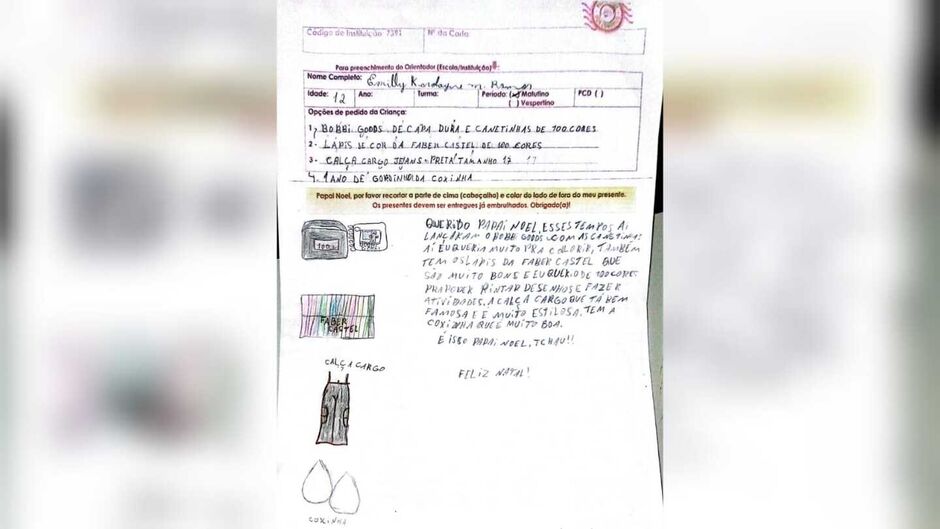 Código de Instituição 7391 Nº da Carta
Para preenchimento do Orientador (Escola/Instituição):
Nome Completo: Emilly
Idade: 12 Ano: Turma: Período: (x) Matutino PCD ( )
( ) Vespertino
Opções de pedido da Criança:
1, BOBBI GOODS DE CAPA DURA E CANETINHAS DE 100 CORES
2- LAPIS DE COR DA FABER CASTEL DE 100 CORES
3- CALÇA CARGO JEANS - PRETA TAMANHO 12
4. 1 ANO DE GORDINHO DA COXINHA
Papai Noel, por favor recortar a parte de cima (cabeçalho) e colar do lado de fora do meu presente.
Os presentes devem ser entregues já embrulhados. Obrigado(a)!
QUERIDO PAPAI NOEL, ESSES TEMPOS AI
LANÇARAM O BOBBI GOODS COM AS CANETINHAS
AÍ EU QUERIA MUITO PRA COLORIR, TAMBÉM
TEM OS LAPIS DA FABER CASTEL QUE
SÃO MUITO BONS E EU QUERO O DE 100 CORES
PRA PODER PINTAR DESENHOS E FAZER
ATIVIDADES. A CALÇA CARGO QUE TÁ BEM
FAMOSA E É MUITO ESTILOSA. TEM A
COXINHA QUE É MUITO BOA.
É ISSO PAPAI NOEL, TCHAU!!
FELIZ NATAL!
100
FABER
CASTEL
CALÇA CARGO
COXINHA